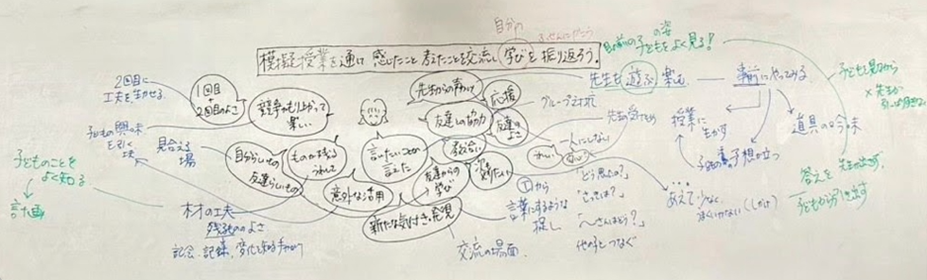 自分の
模擬授業を通して感じたこと考えたことを交流し、学びを振り返ろう。
目の前の子の姿
子どもをよく見る!
2回目に
工夫を生かせる
1回目
+
2回目のよさ
競争がもり上がって
楽しい
先生からの声かけ
応援
先生も遊ぶ 楽しむ
事前にやってみる
子どもを見ながら
×先生が
子どもの興味
を引く
見合える
場
友達との協力
グループ
友達の
よさ
先生の
授業に
生かす
道具の吟味
子どものことを
よく知る
計画
自分らしいもの
友達らしいもの
ものが残る
うれしさ
言いたいことが
言えた
教え合い
一人にしない
子どもの様子 想い立つ
意外な活用
友達からの
学び
次やりたい
「どう思った?」
あえて少なく、
答えを先生が出さず、
子どもから引き出す
材の工夫
残るもののよさ
記念、記録、変化を知る
新たな気付き・発見
Tから
言葉にするような
促し
「〜さんはどう?」
他の子とつなぐ
交流の場面